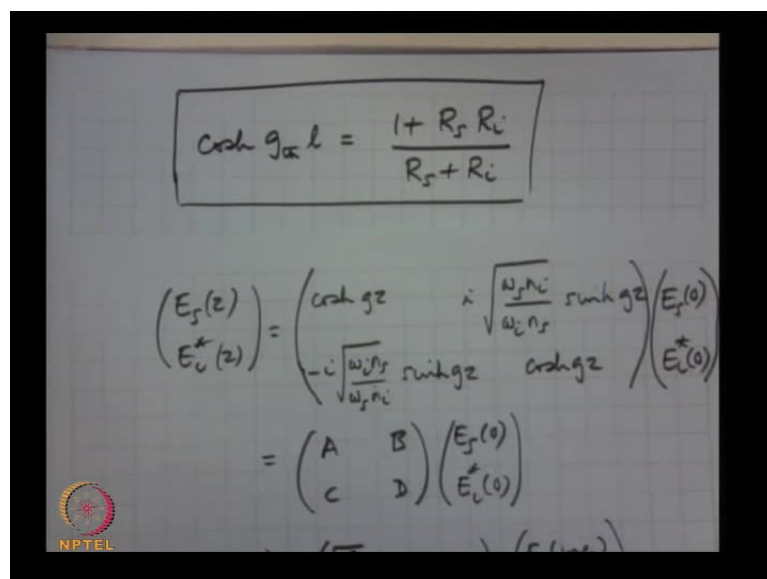 cosh g_th l = (1 + R_s R_i) / (R_s + R_i)
(E_s(z) E_i^*(z)) = (cosh gz i √(ω_s n_i / ω_i n_s) sinh gz -i √(ω_i n_s / ω_s n_i) sinh gz cosh gz) (E_s(0) E_i^*(0))
= (A B C D) (E_s(0) E_i^*(0))
NPTEL